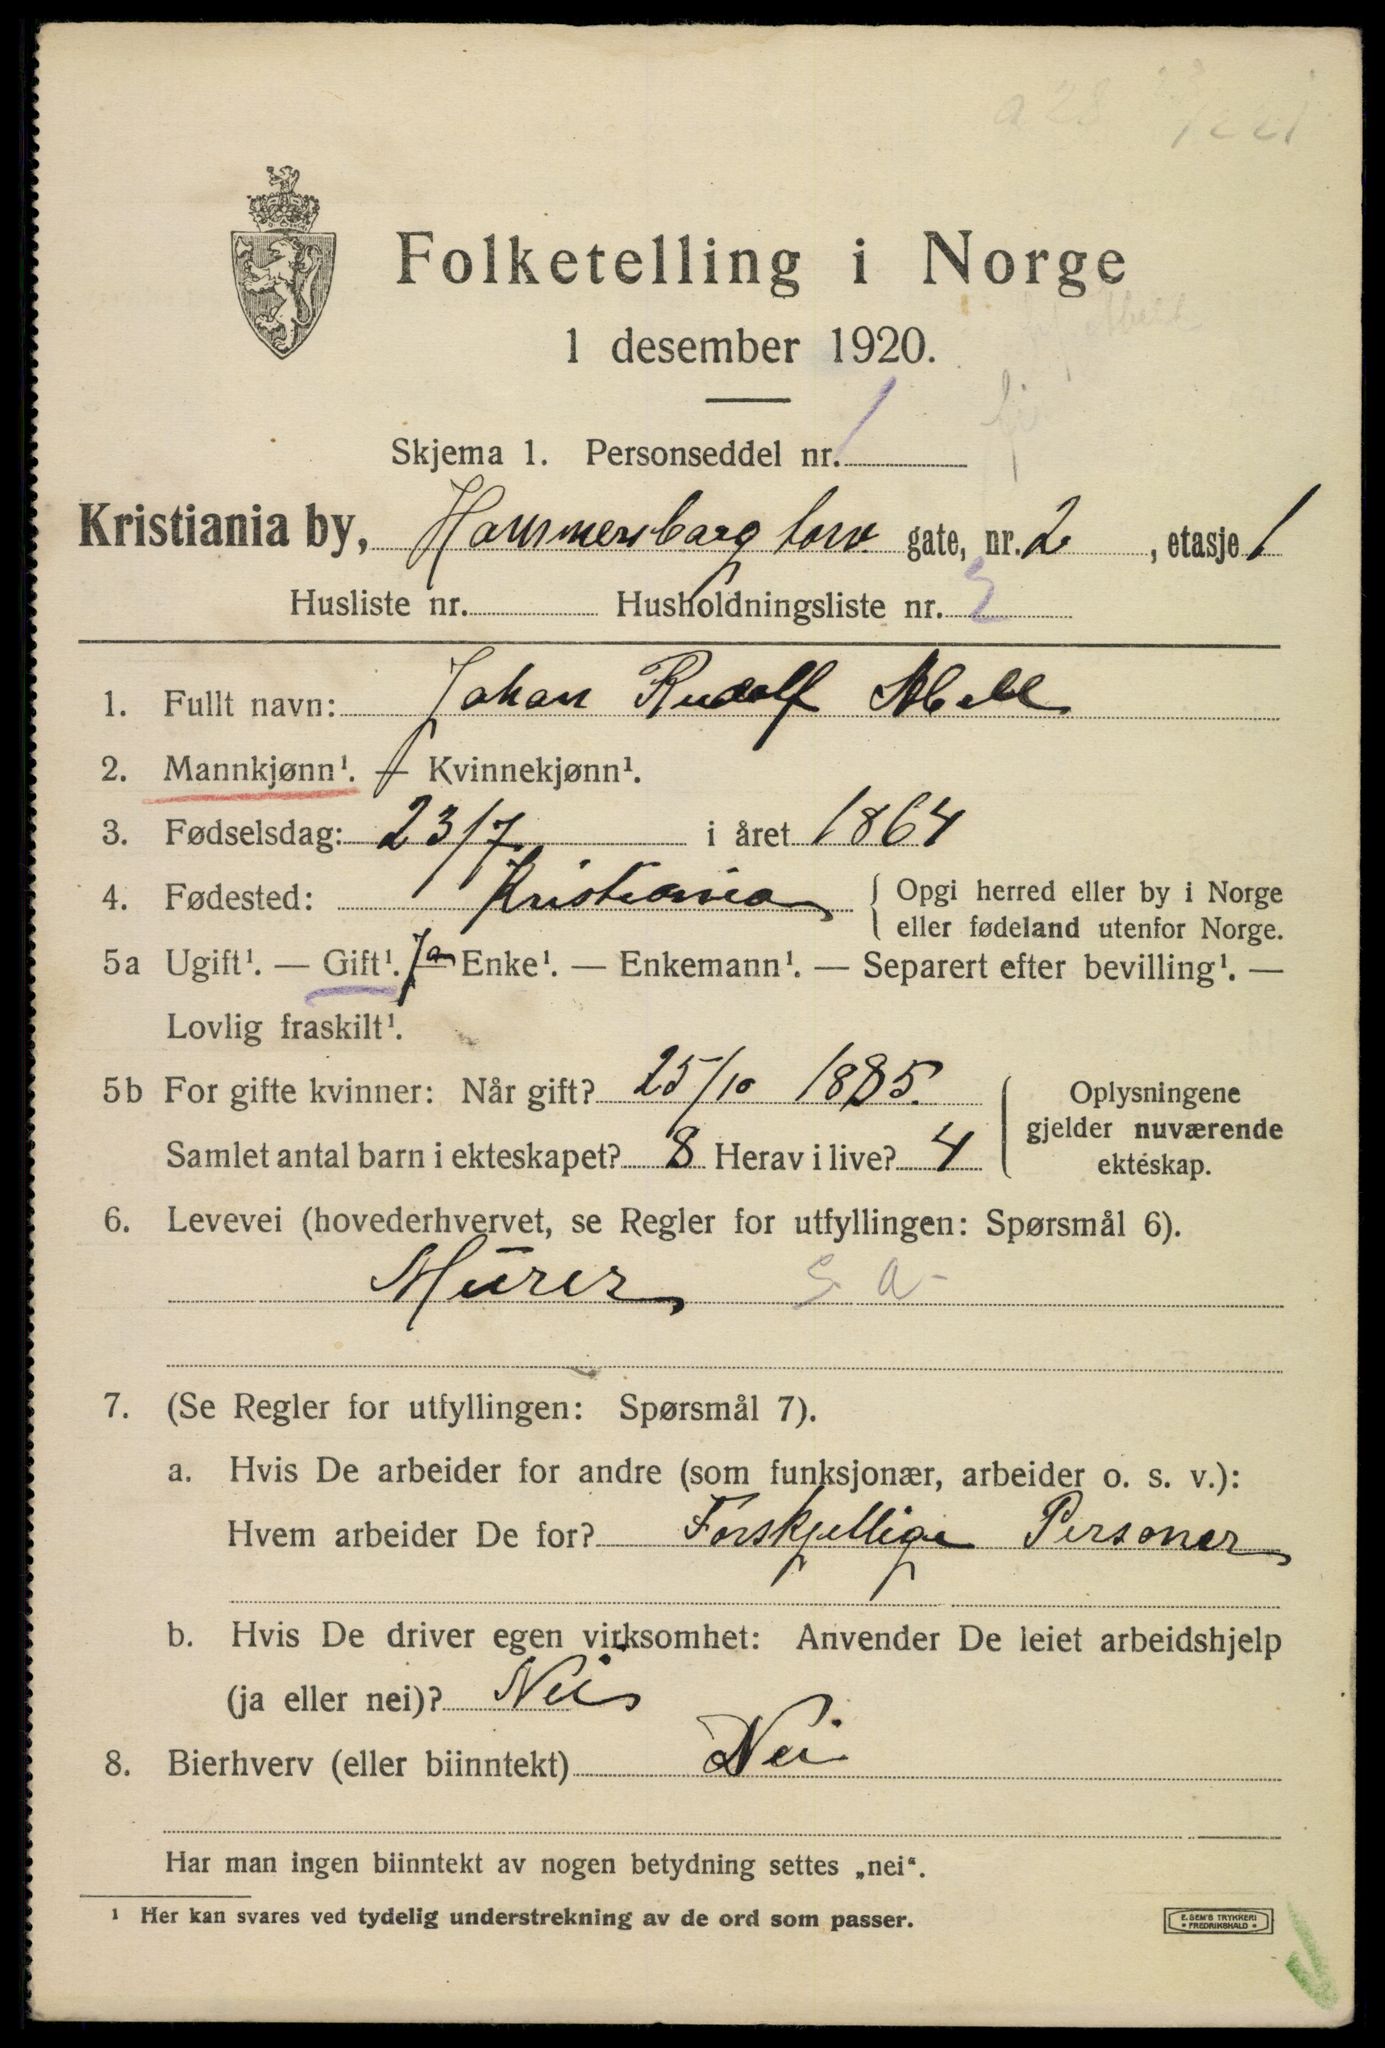 Folketelling i Norge
1 desember 1920.
Skjema 1. Personseddel nr. 1
Kristiania by, Hammersborg torv gate, nr. 2, etasje 1
Husliste nr. Husholdningsliste nr. 3
1. Fullt navn: Johan Rudolf Abell
2. Mannkjønn¹. — Kvinnekjønn¹.
3. Fødselsdag: 23/7 i året 1864
4. Fødested: Kristiania { Opgi herred eller by i Norge
eller fødeland utenfor Norge.
5a Ugift¹. — Gift¹. Ja — Enke¹. — Enkemann¹. — Separert efter bevilling¹. —
Lovlig fraskilt¹.
5b For gifte kvinner: Når gift? 25/10 1885.
Samlet antal barn i ekteskapet? 8 Herav i live? 4
Oplysningene
gjelder nuværende
ekteskap.
6. Levevei (hovederhvervet, se Regler for utfyllingen: Spørsmål 6).
Murer
7. (Se Regler for utfyllingen: Spørsmål 7).
a. Hvis De arbeider for andre (som funksjonær, arbeider o. s. v.):
Hvem arbeider De for? Forskjellige Personer
b. Hvis De driver egen virksomhet: Anvender De leiet arbeidshjelp
(ja eller nei)? Nei
8. Bierhverv (eller biinntekt) Nei
Har man ingen biinntekt av nogen betydning settes „nei“.
¹ Her kan svares ved tydelig understrekning av de ord som passer.
E. SEM'S TRYKKERI
FREDRIKSHALD